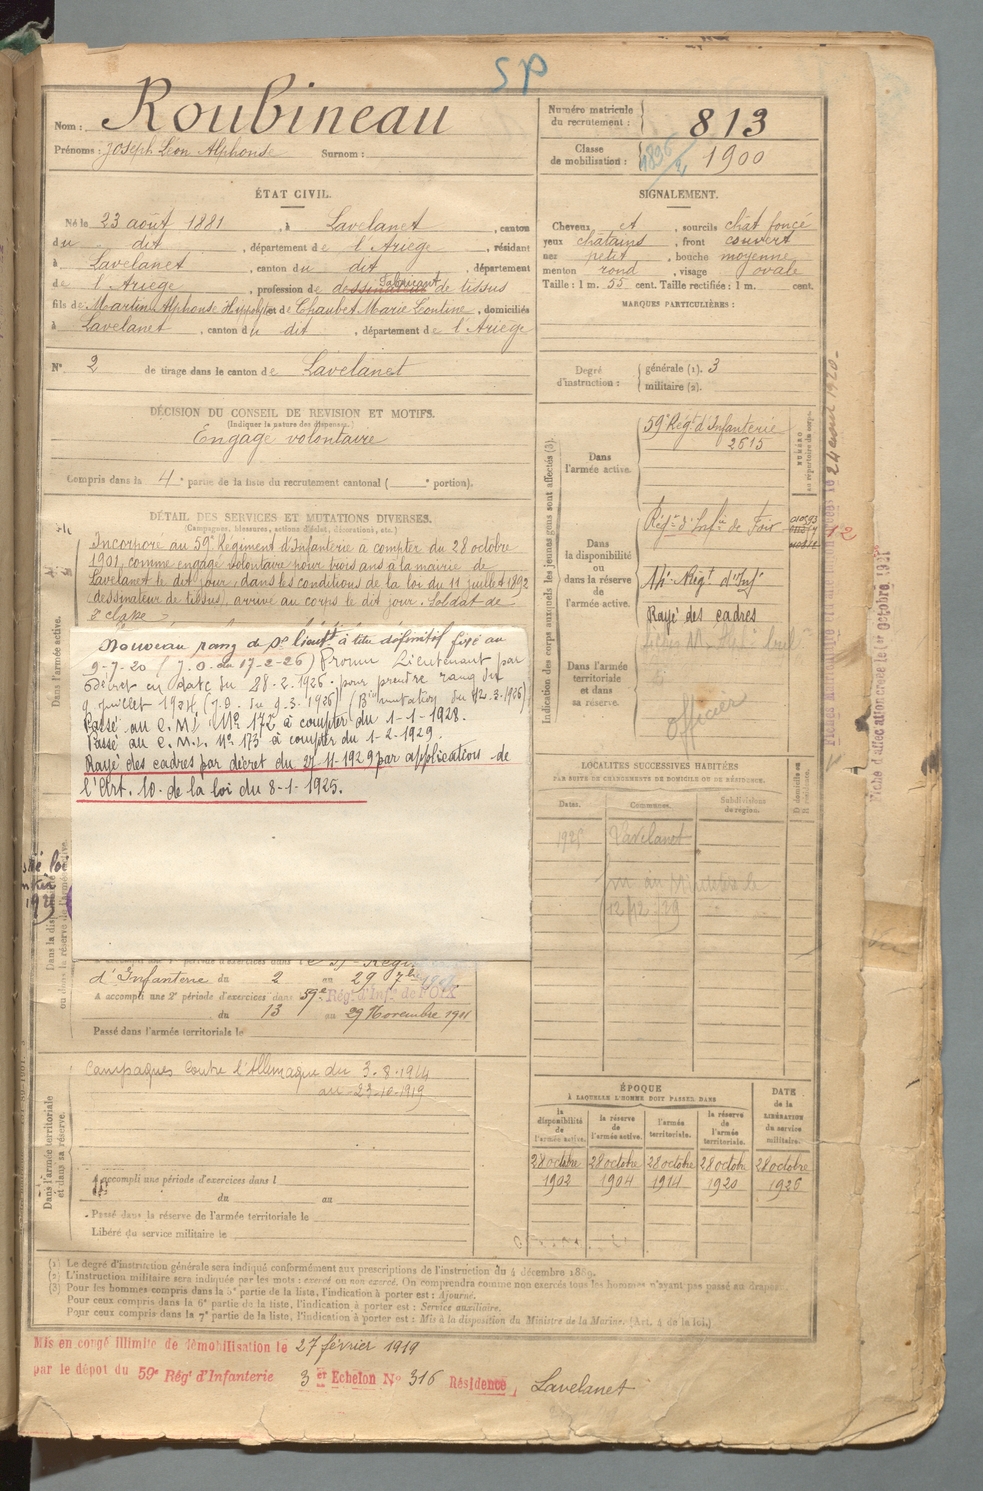 SP
Nom : Roubineau
Prénoms : Joseph Léon Alphonse Surnom :
Numéro matricule du recrutement : 813
Classe de mobilisation : 1900
ÉTAT CIVIL.
Né le 23 août 1881, à Lavelanet, canton
du dit, département de l'Ariège, résidant
à Lavelanet, canton du dit, département
de l'Ariège, profession de dessinateur Fabricant de tissus
fils de Martin Alphonse et de Chaubet Marie, domiciliés
à Lavelanet, canton du dit, département de l'Ariège
N° 2 de tirage dans le canton de Lavelanet
SIGNALEMENT.
Cheveux et, sourcils chât foncé
yeux châtains, front couvert
nez petit, bouche moyenne
menton rond, visage ovale
Taille : 1 m. 55 cent. Taille rectifiée : 1 m. cent.
MARQUES PARTICULIÈRES :
Degré d'instruction : générale (1). 3
militaire (2).
DÉCISION DU CONSEIL DE REVISION ET MOTIFS.
(Indiquer la nature des dispenses.)
Engagé volontaire
Compris dans la 4e partie de la liste du recrutement cantonal ( e portion).
DÉTAIL DES SERVICES ET MUTATIONS DIVERSES.
(Campagnes, blessures, actions d'éclat, décorations, etc.)
Dans l'armée active.
Incorporé au 59e Régiment d'Infanterie à compter du 28 octobre
1901, comme engagé volontaire pour trois ans à la mairie de
Lavelanet le dit jour, dans les conditions de la loi du 11 juillet 1892
(dessinateur de tissus), arrivé au corps le dit jour. Soldat de
2e classe
Nouveau rang de St lieut à titre définitif fixé au
9-7-20 (J.O. du 17-2-26) Promu Lieutenant par
décret en date du 28-2-1926 pour prendre rang du
9 juillet 1924 (J.O. du 9-3-1926) (mutation du 12-3-1926)
Passé au C.M.I. N° 172 à compter du 1-1-1928.
Passé au C.M.I. N° 173 à compter du 1-2-1929.
Rayé des cadres par décret du 27-11-1929 par application de
l'Art. 10 de la loi du 8-1-1925.
d'Infanterie du 2 au 29 7bre
A accompli une 2e période d'exercices dans 59e Régt d'Infie de FOIX
du 13 au 29 Novembre 1911
Passé dans l'armée territoriale le
Dans l'armée territoriale et dans sa réserve.
Campagnes Contre l'Allemagne du 3-8-1914
au 23-10-1919
A accompli une période d'exercices dans l
du au
Passé dans la réserve de l'armée territoriale le
Libéré du service militaire le
Indication des corps auxquels les jeunes gens sont affectés (3).
NUMÉRO au répertoire du corps.
Dans l'armée active.
59e Régt d'Infanterie
2615
Dans la disponibilité ou dans la réserve de l'armée active.
Régt d'Infie de Foix
14e Régt d'Inf
Rayé des cadres
Dans l'armée territoriale et dans sa réserve.
officier
LOCALITÉS SUCCESSIVES HABITÉES
PAR SUITE DE CHANGEMENTS DE DOMICILE OU DE RÉSIDENCE.
Dates. Communes. Subdivisions de région. D domicile ou R résidence.
Lavelanet
12/12/29
ÉPOQUE
À LAQUELLE L'HOMME DOIT PASSER DANS
la disponibilité de l'armée active. la réserve de l'armée active. l'armée territoriale. la réserve de l'armée territoriale.
DATE de la LIBÉRATION du service militaire.
28 octobre 28 octobre 28 octobre 28 octobre 28 octobre
1902 1904 1914 1920 1926
Fiche d'affectation créée le 1er Octobre 1921
(1) Le degré d'instruction générale sera indiqué conformément aux prescriptions de l'instruction du 4 décembre 1889.
(2) L'instruction militaire sera indiquée par les mots : exercé ou non exercé. On comprendra comme non exercés tous les hommes n'ayant pas passé au drapeau.
(3) Pour les hommes compris dans la 5e partie de la liste, l'indication à porter est : Ajourné.
Pour ceux compris dans la 6e partie de la liste, l'indication à porter est : Service auxiliaire.
Pour ceux compris dans la 7e partie de la liste, l'indication à porter est : Mis à la disposition du Ministre de la Marine. (Art. 4 de la loi.)
Mis en congé illimité de démobilisation le 27 février 1919
par le dépôt du 59e Régt d'Infanterie 3 er Echelon N° 316 Résidence, Lavelanet